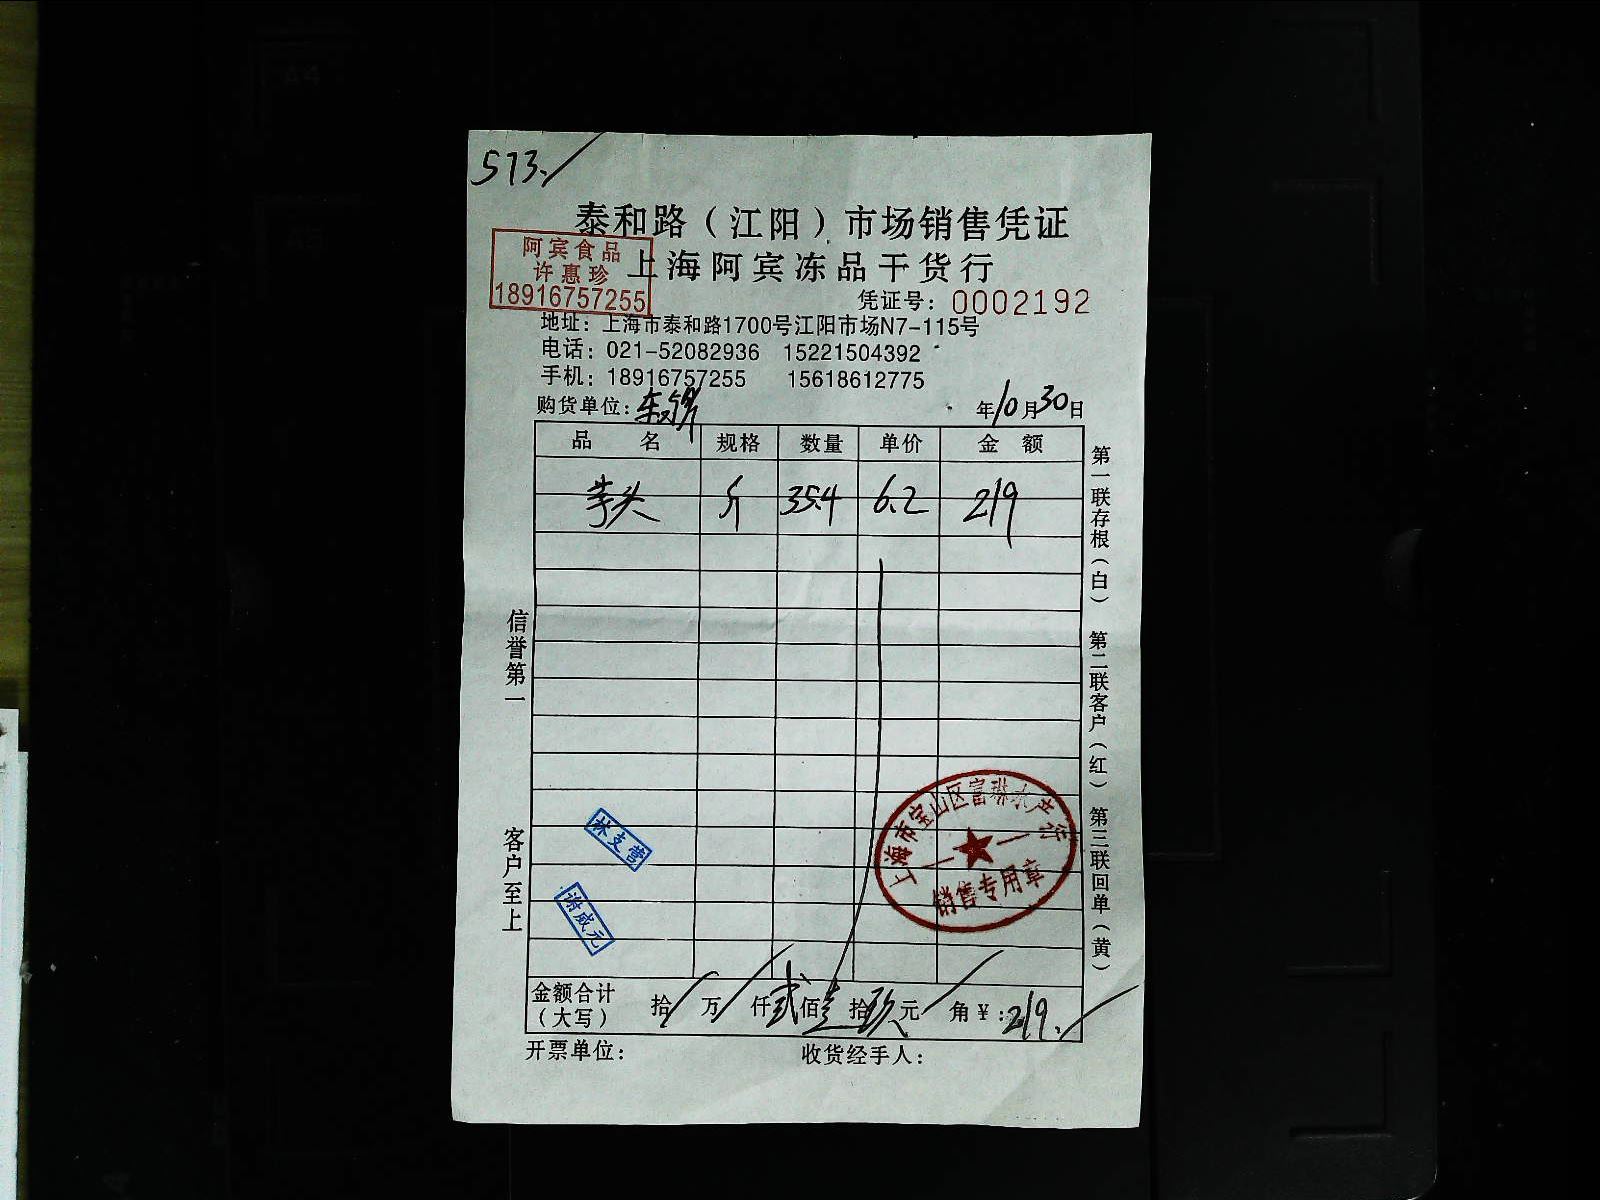 573.
泰和路（江阳）市场销售凭证
阿宾食品
许惠珍
18916757255
上海阿宾冻品干货行
凭证号：0002192
地址：上海市泰和路1700号江阳市场N7-115号
电话：021-52082936 15221504392
手机：18916757255 15618612775
购货单位： 年10月30日
品名 规格 数量 单价 金额
芋头 斤 35.4 6.2 219
信誉第一
客户至上
第一联存根（白） 第二联客户（红） 第三联回单（黄）
林支营
谢咸元
上海市宝山区富琳水产行
销售专用章
金额合计（大写） 拾 万 仟贰佰壹拾玖元 角￥：219.
开票单位： 收货经手人：
A4
A5